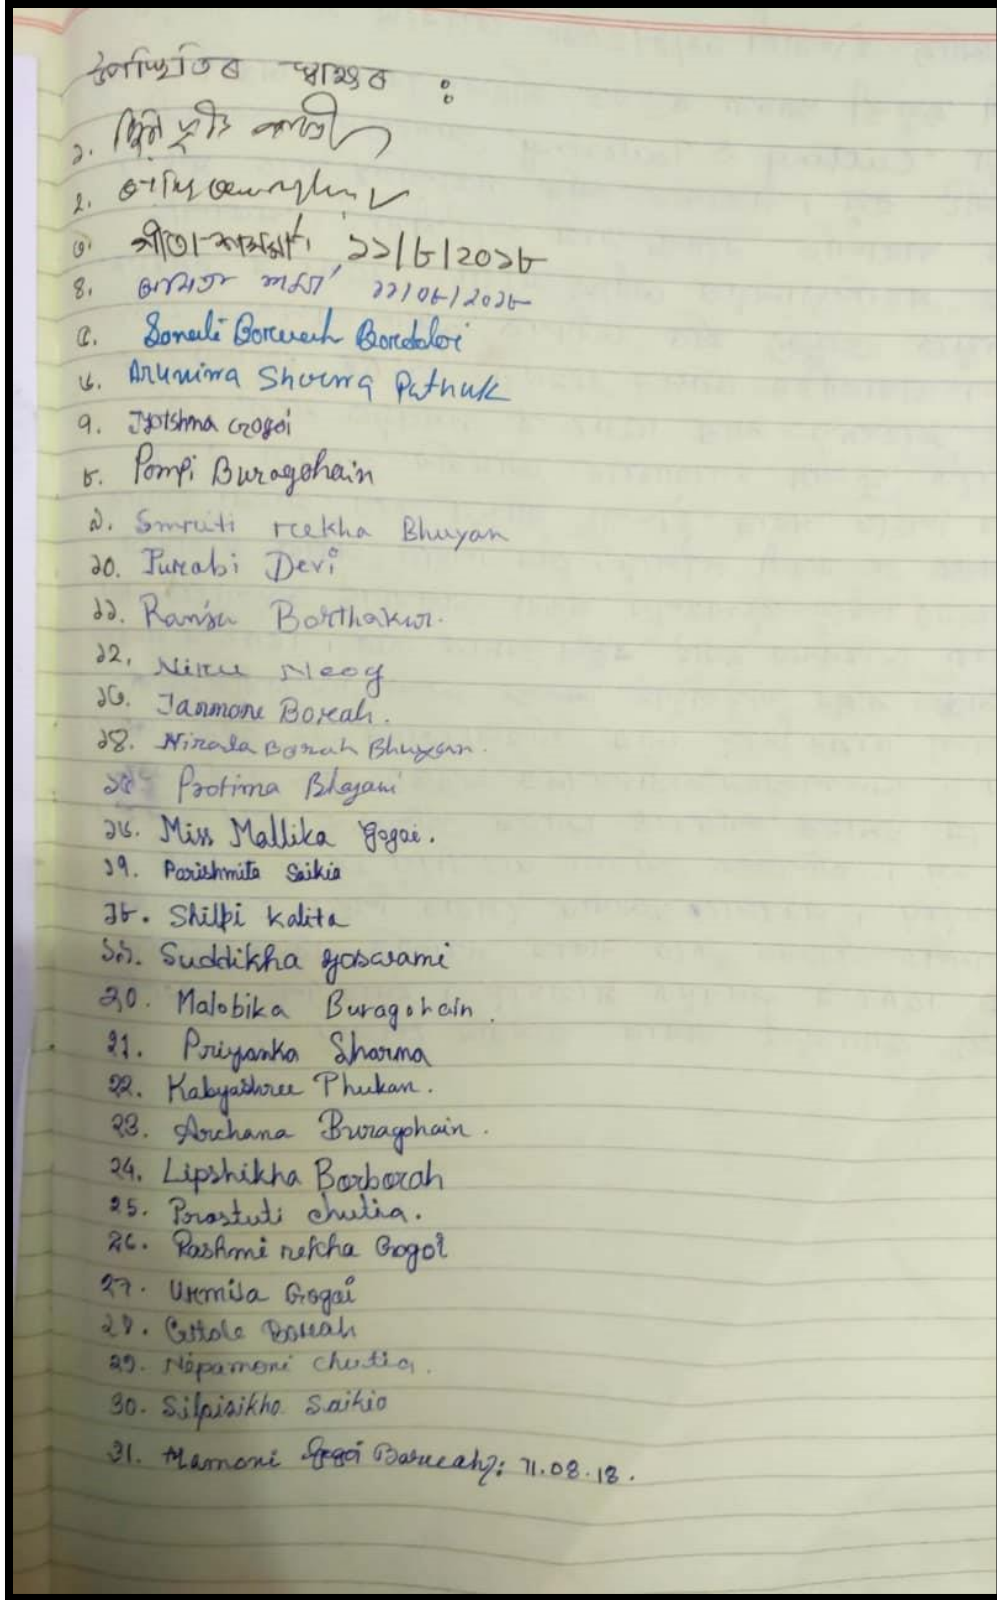 উপস্থিতিৰ স্বাক্ষৰ :
১.
২.
৩. গীতা শইকীয়া ১১/৮/২০১৮
৪. শৰ্মা ১১/০৮/২০১৮
৫. Sonali Boruah Bordoloi
৬. Arunima Sharma Pathak
৭. Jyotshna Gogoi
৮. Pompi Buragohain
৯. Smruti reekha Bhuyan
১০. Purabi Devi
১১. Ranju Borthakur.
১২. Niru Neog
১৩. Janmone Borah.
১৪. Nirala Borah Bhuyan.
১৫. Protima Bhajani
১৬. Miss Mallika Gogoi.
১৭. Parishmita Saikia
১৮. Shilpi Kalita
১৯. Suddikha Goswami
২0. Malobika Buragohain.
২1. Priyanka Sharma
22. Kabyashree Phukan.
23. Archana Buragohain.
24. Lipshikha Borborah
25. Prostuti chutia.
26. Rashmi rekha Gogoi
27. Urmila Gogoi
28. Borah
29. Nipamoni chutia.
30. Silpisikha Saikia
31. Mamoni Gogoi Baruah: 11.08.18.